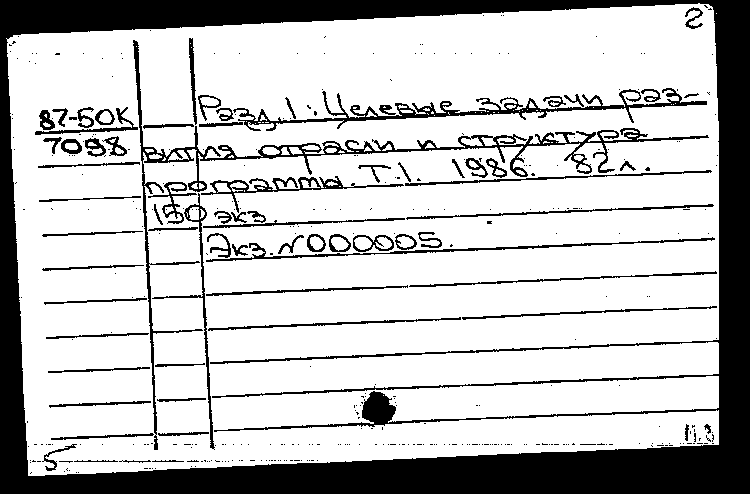 2
87-50К
7098
Разд. 1: Целевые задачи раз-
вития отрасли и структура
программы. Т.1. 1986. 82 л.
150 экз.
Экз. №000005.
5